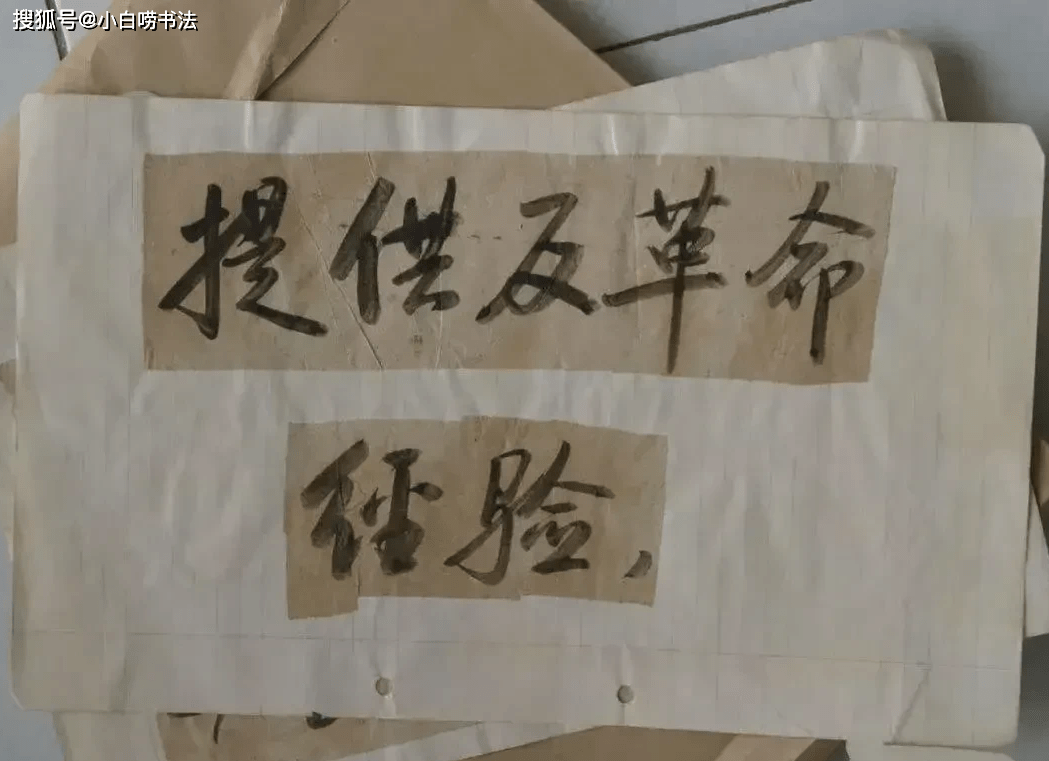 搜狐号@小白唠书法
提供反革命
经验，